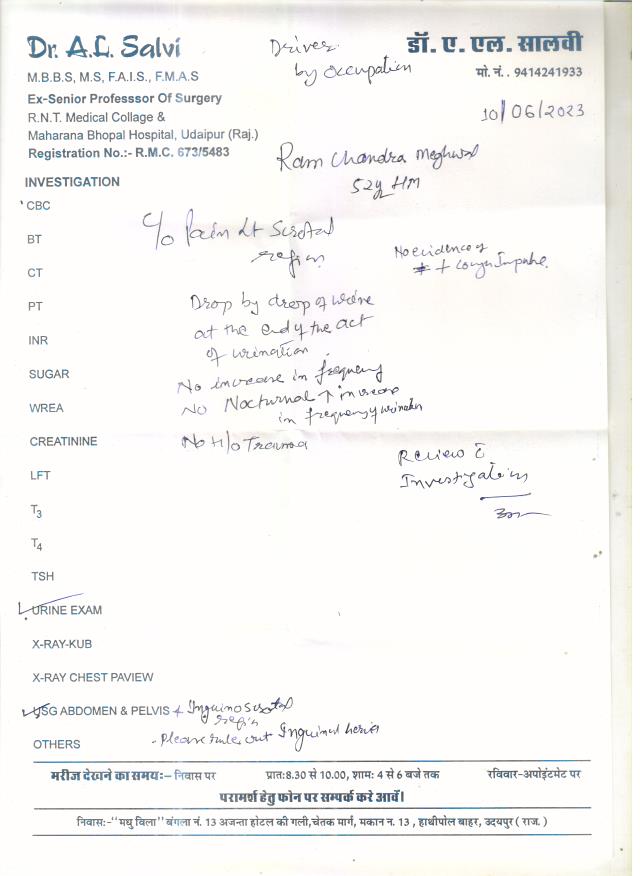 Dr. A.L. Salvi
M.B.B.S, M.S, F.A.I.S., F.M.A.S
Ex-Senior Professsor Of Surgery
R.N.T. Medical Collage &
Maharana Bhopal Hospital, Udaipur (Raj.)
Registration No.:- R.M.C. 673/5483
Driver
by occupation
डॉ. ए. एल. सालवी
मो. नं. : 9414241933
10/06/2023
Ram Chandra Meghwal
52y HM
INVESTIGATION
CBC
BT
CT
PT
INR
SUGAR
WREA
CREATININE
LFT
T3
T4
TSH
URINE EXAM
X-RAY-KUB
X-RAY CHEST PAVIEW
USG ABDOMEN & PELVIS + Inguino Scrotal
region
OTHERS
- Please rule out Inguinal hernia
C/o Pain Lt Scrotal
region
No evidence of
+ cough Impulse
Drop by drop of urine
at the end of the act
of urination
No increase in frequency
No Nocturnal ↑ increase
in frequency of urination
No H/o Trauma
Review c̄
Investigations
मरीज देखने का समय:– निवास पर प्रात:8.30 से 10.00, शाम: 4 से 6 बजे तक रविवार-अपोइंटमेट पर
परामर्श हेतु फोन पर सम्पर्क करे आवें।
निवास:-"मधु विला" बंगला नं. 13 अजन्ता होटल की गली,चेतक मार्ग, मकान न. 13 , हाथीपोल बाहर, उदयपुर ( राज. )